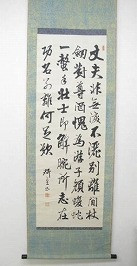 丈夫非無涙不灑別離間杖
劒對尊酒愧為游子顔蝮蛇
一螫手壮士即解腕所志在
功名別離何足歎